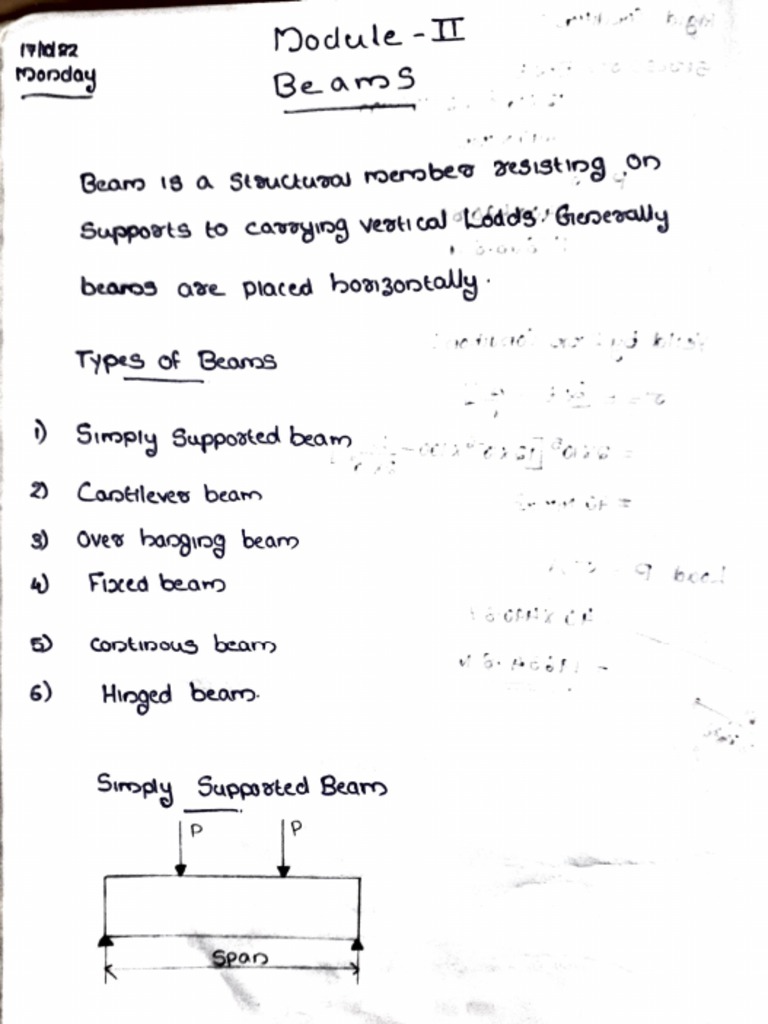 Module - II
Monday
Beams
Beam is a structural member resisting on
supports to carrying vertical Loads. Generally
beams are placed horizontally.
Types of Beams
1) Simply supported beam
2) Cantilever beam
3) Over hanging beam
4) Fixed beam
5) continous beam
6) Hinged beam.
Simply Supported Beam
P P
Span